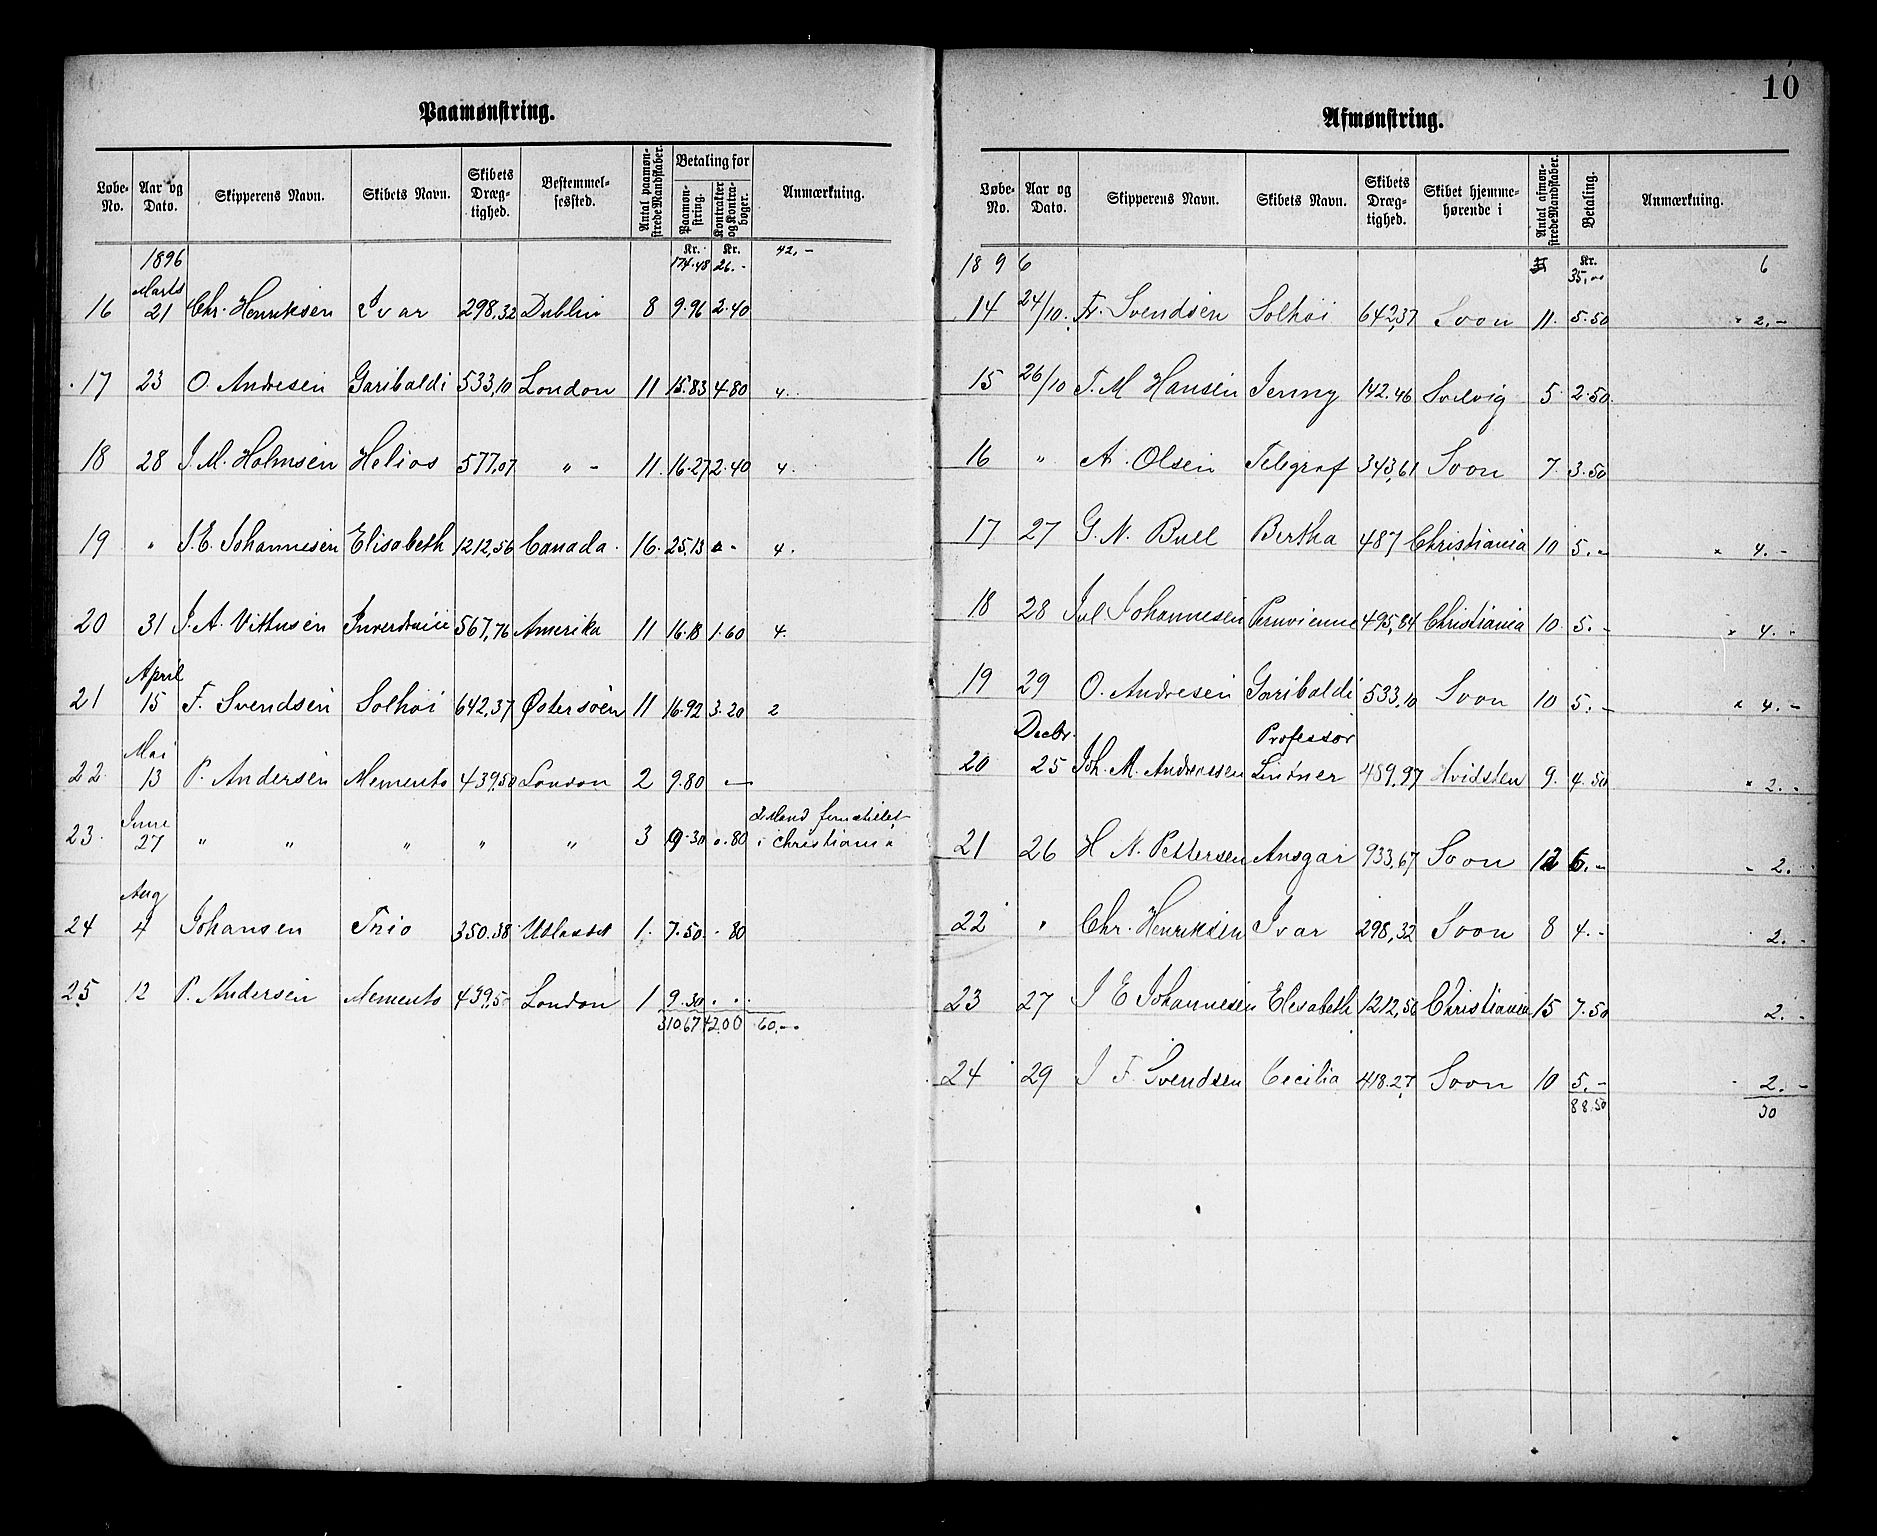 10
Paamønstring.
Løbe-No. | Aar og Dato. | Skipperens Navn. | Skibets Navn. | Skibets Dræg-tighed. | Bestemmel-sessted. | Antal paamøn-strede Mandskaber. | Betaling for Paamøn-string. | Kontrakter og Kontra-bøger. | Anmærkning.
1896 | Kr. 174.48 | Kr. 26.- | 42,-
16 | Marts 21 | Chr. Henriksen | Ivar | 298,32 | Dublin | 8 | 9.96 | 2.40
17 | 23 | O. Andresen | Garibaldi | 533,10 | London | 11 | 15.83 | 4.80 | 4.
18 | 28 | I. M. Holmsen | Helios | 577,07 | " - | 11 | 16.27 | 2.40 | 4.
19 | " | I. E. Johannesen | Elisabeth | 1212,56 | Canada. | 16. | 25,13 | 4.
20 | 31 | I. A. Vithusen | 567,76 | Amerika | 11 | 16.18 | 1.60 | 4.
21 | April 15 | F. Svendsen | Solhøi | 642,37 | Østersøen | 11 | 16.92 | 3.20 | 2
22. | Mai 13 | P. Andersen | Memento | 439,50 | London | 2 | 9.80 | —
23. | Juni 27 | " " | " | " | " | 3 | 9.30 | 0.80 | 2 Mand i Christiania
24 | Aug 4 | Johansen | Trio | 350.38 | Udlandet | 1. | 7.50. | - 80
25 | 12 | P. Andersen | Memento | 439,50 | London | 1 | 9.30 | . .
310.67 | 42.00 | 60.--
Afmønstring.
Løbe-No. | Aar og Dato. | Skipperens Navn. | Skibets Navn. | Skibets Dræg-tighed. | Skibet hjemme-hørende i | Antal afmøn-strede Mandskaber. | Betaling. | Anmærkning.
1896 | Kr. 35,00 | 6
14 | 24/10. | Fr. Svendsen | Solhøi | 642,37 | Soon | 11. | 5.50 | 2,-
15 | 26/10 | T. M Hansen | Jenny | 142.46 | Svelvig | 5 | 2.50.
16 | " | A. Olsen | Telegraf | 343,61 | Soon | 7. | 3.50
17 | 27 | G. N. Bull | Bertha | 487 | Christiania | 10 | 5.- | × 4.-
18 | 28 | Jul Johannesen | Peruvienne | 495,84 | Christiania | 10 | 5.- | × 4.-
19 | 29 | O. Andresen | Garibaldi | 533,10 | Soon | 10 | 5.- | × 4.-
20 | Decbr. 25 | Joh. M. Andressen | Professor Lintner | 489,97 | Hvidsten | 9. | 4.50 | × 2.-
21 | 26 | H N. Pettersen | Ansgar | 933,67 | Soon | 12 | 6.- | - 2.
22 | " | Chr. Henriksen | Ivar | 298,32 | Soon | 8 | 4.- | 2.-
23 | 27 | I E Johannesen | Elesabeth | 1212,56 | Christiania | 15 | 7.50 | 2.-
24 | 29 | I F. Svendsen | Cecilia | 418.27 | Soon | 10 | 5.- | 2.-
88.50 | 30